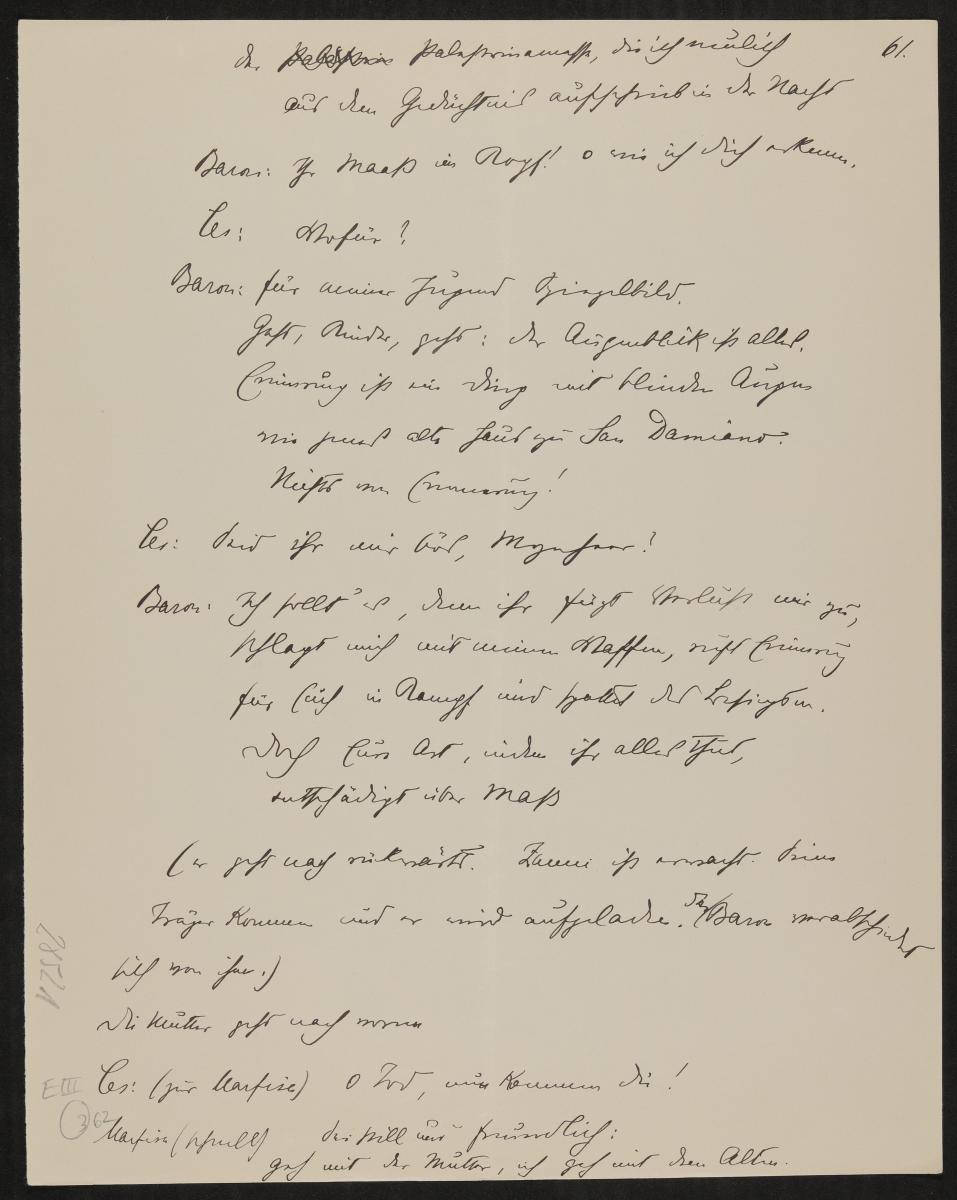 der Palestrinamesse, die ich neulich 61.
aus dem Gedächtnis aufschrieb in der Nacht
Baron: Ihr Maaß im Kopf! o wie ich dich erkenne,
Ces: Wofür?
Baron: für meiner Jugend Spiegelbild.
Geht, Kinder, geht: der Augenblick ist alles.
Erinnrung ist ein Ding mit blinden Augen
wie jenes alte Haus zu San Damiano.
Nichts von Erinnerung!
Ces: Seid ihr mir bös, Mynheer?
Baron: Ich sollt' es, denn ihr fügt Verlust mir zu,
schlagt mich mit meinen Waffen, ruft Erinnrung
für Euch in Kampf und spottet des Besiegten.
Doch Eure Art, indem ihr alles thut,
entschädigt über Maß
(er geht nach rückwärts. Zanni ist erwacht. Seine
Träger kommen und er wird aufgeladen. der Baron verabschiedet
sich von ihm.)
Die Mutter geht nach vorne
Ces: (zur Marfisa) O Tod, nun kommen die!
Marfisa (schnell) Sei still und freundlich:
geh mit der Mutter, ich geh mit dem Alten.
E III